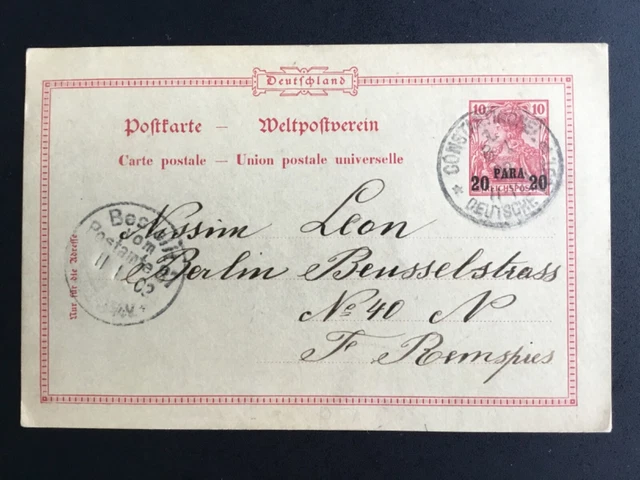 Deutschland
Postkarte — Weltpostverein
Carte postale — Union postale universelle
10 10
20 PARA 20
REICHSPOST
DEUTSCHE
Nur für die Adresse
Bestellt
vom
Postamte
Nissim Leon
Berlin Beusselstrass
No 40 N
F Remspies